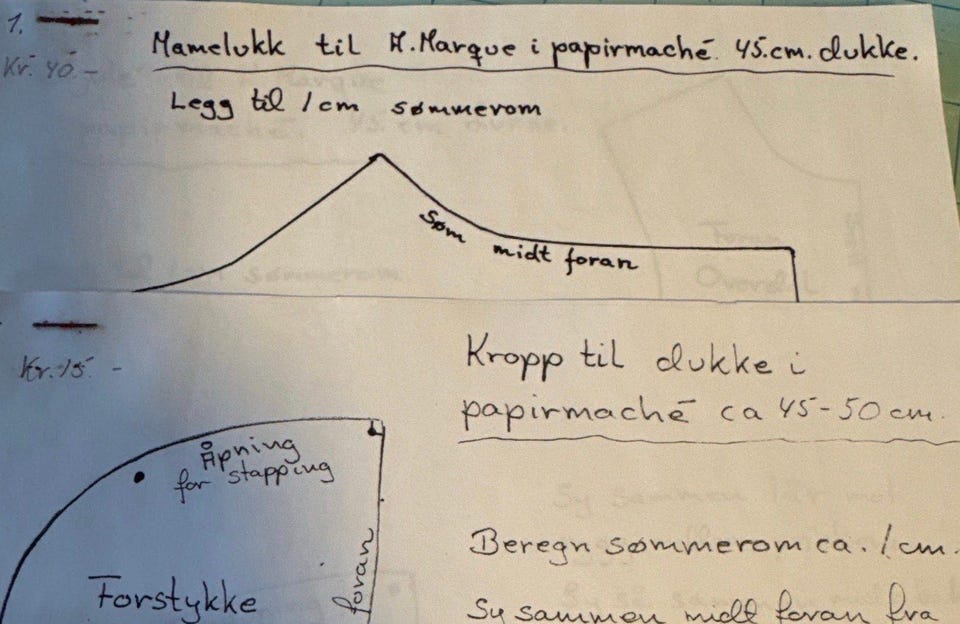 1.
Kr. 40.-
Mamelukk til A. Marque i papirmaché 45.cm. dukke.
Legg til 1 cm sømmerom
Søm midt foran
Kr. 15. -
Kropp til dukke i
papirmaché ca 45-50 cm.
Åpning
for stapping
foran
Forstykke
Beregn sømmerom ca. 1 cm.
Sy sammen midt foran fra